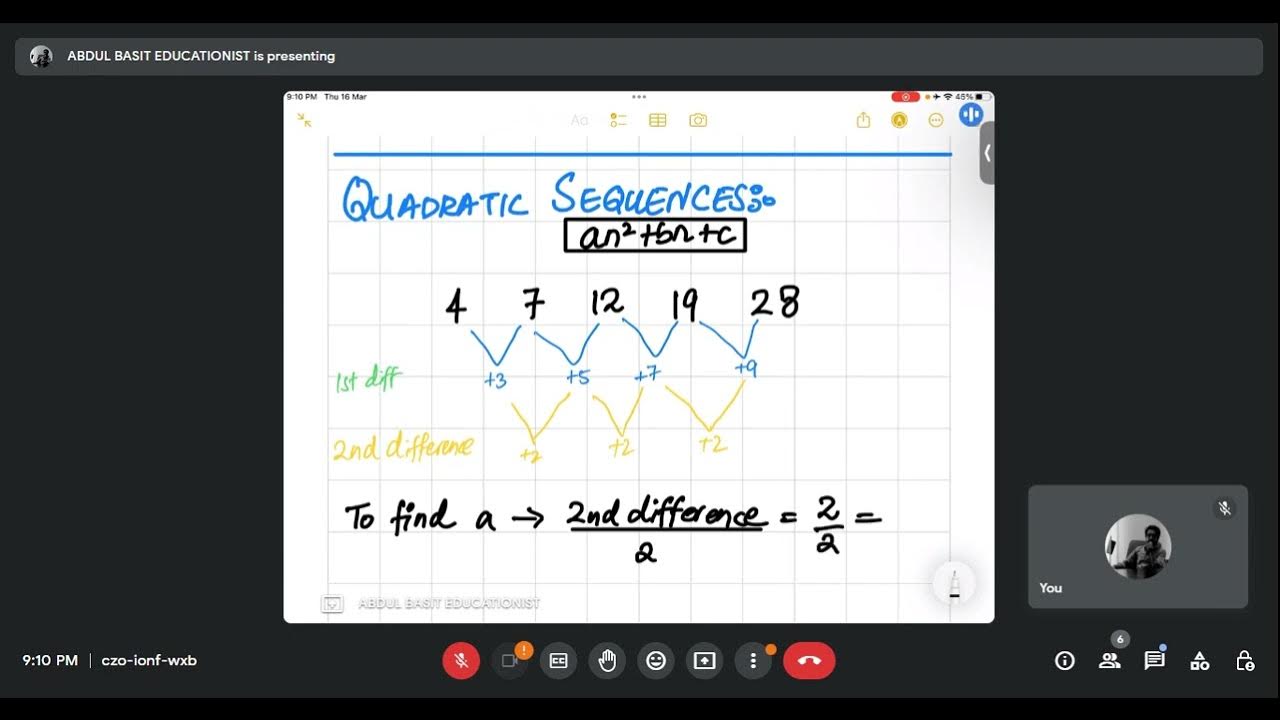 ABDUL BASIT EDUCATIONIST is presenting
9:10 PM Thu 16 Mar
45%
Aa
QUADRATIC SEQUENCES:
an²+bn+c
4 7 12 19 28
1st diff +3 +5 +7 +9
2nd difference +2 +2 +2
To find a → 2nd difference = 2 =
2 2
ABDUL BASIT EDUCATIONIST
You
9:10 PM | czo-ionf-wxb
CC
6